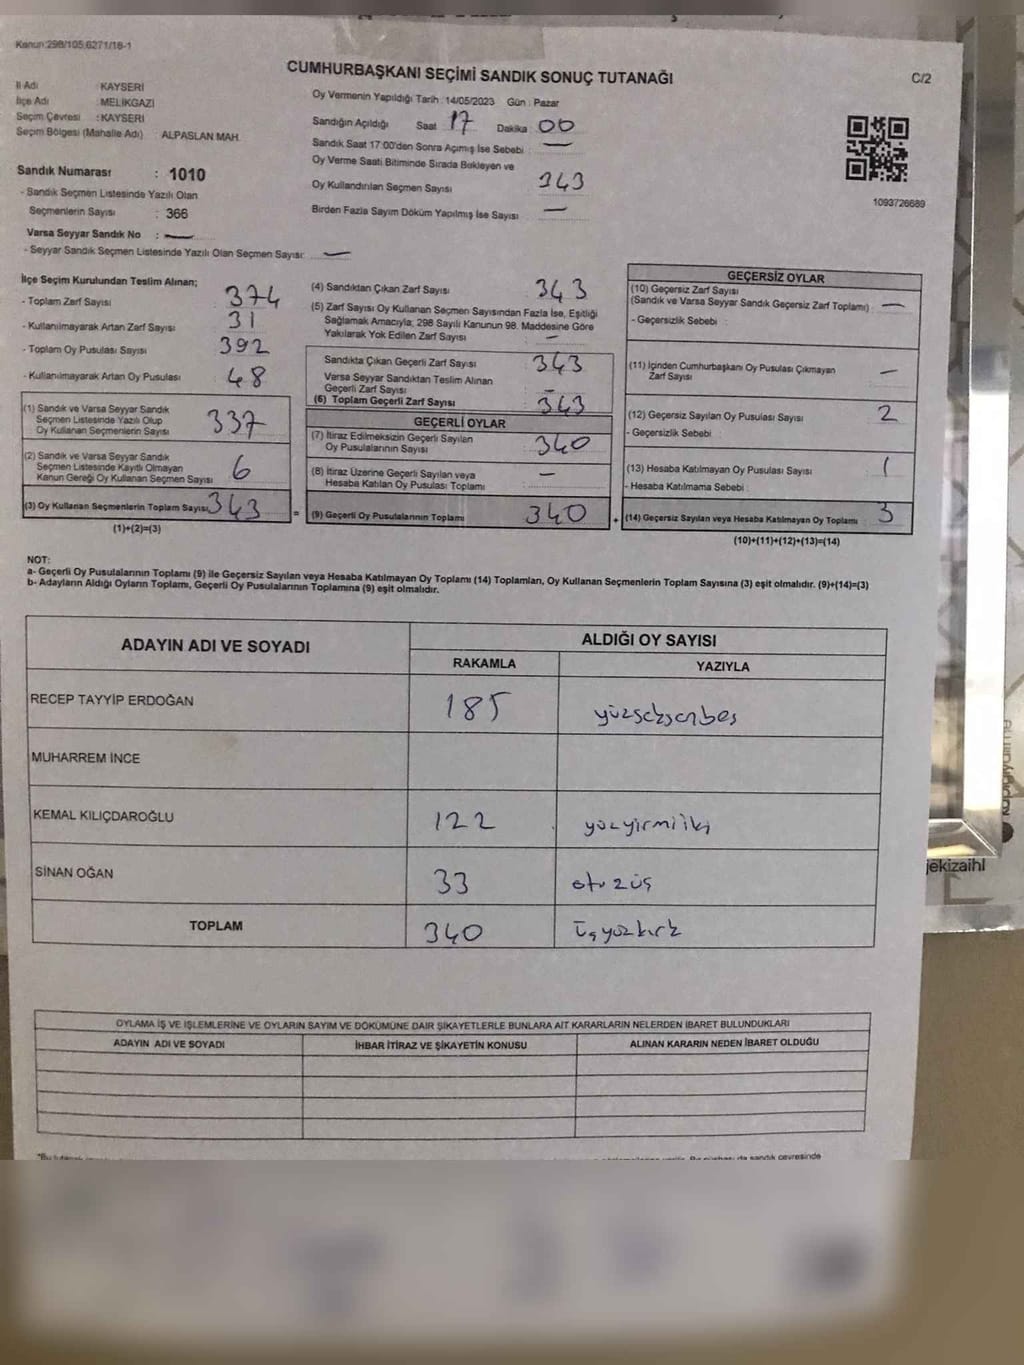 Kanun:298/105,6271/18-1
CUMHURBAŞKANI SEÇİMİ SANDIK SONUÇ TUTANAĞI
C/2
İl Adı : KAYSERİ
İlçe Adı : MELİKGAZİ
Seçim Çevresi : KAYSERİ
Seçim Bölgesi (Mahalle Adı) : ALPASLAN MAH.
Sandık Numarası : 1010
- Sandık Seçmen Listesinde Yazılı Olan
Seçmenlerin Sayısı : 366
Varsa Seyyar Sandık No : —
- Seyyar Sandık Seçmen Listesinde Yazılı Olan Seçmen Sayısı: —
Oy Vermenin Yapıldığı Tarih : 14/05/2023 Gün : Pazar
Sandığın Açıldığı Saat 17 Dakika 00
Sandık Saat 17:00'den Sonra Açımış İse Sebebi : —
Oy Verme Saati Bitiminde Sırada Bekleyen ve
Oy Kullandırılan Seçmen Sayısı 343
Birden Fazla Sayım Döküm Yapılmış İse Sayısı —
1093726689
İlçe Seçim Kurulundan Teslim Alınan;
- Toplam Zarf Sayısı 374
- Kullanılmayarak Artan Zarf Sayısı 31
- Toplam Oy Pusulası Sayısı 392
- Kullanılmayarak Artan Oy Pusulası 48
(1) Sandık ve Varsa Seyyar Sandık
Seçmen Listesinde Yazılı Olup
Oy Kullanan Seçmenlerin Sayısı 337
(2) Sandık ve Varsa Seyyar Sandık
Seçmen Listesinde Kayıtlı Olmayan
Kanun Gereği Oy Kullanan Seçmen Sayısı 6
(3) Oy Kullanan Seçmenlerin Toplam Sayısı 343
(1)+(2)=(3)
=
(4) Sandıktan Çıkan Zarf Sayısı 343
(5) Zarf Sayısı Oy Kullanan Seçmen Sayısından Fazla İse, Eşitliği
Sağlamak Amacıyla; 298 Sayılı Kanunun 98. Maddesine Göre
Yakılarak Yok Edilen Zarf Sayısı —
Sandıkta Çıkan Geçerli Zarf Sayısı 343
Varsa Seyyar Sandıktan Teslim Alınan
Geçerli Zarf Sayısı —
(6) Toplam Geçerli Zarf Sayısı 343
GEÇERLİ OYLAR
(7) İtiraz Edilmeksizin Geçerli Sayılan
Oy Pusulalarının Sayısı 340
(8) İtiraz Üzerine Geçerli Sayılan veya
Hesaba Katılan Oy Pusulası Toplamı —
(9) Geçerli Oy Pusulalarının Toplamı 340
+
GEÇERSİZ OYLAR
(10) Geçersiz Zarf Sayısı
(Sandık ve Varsa Seyyar Sandık Geçersiz Zarf Toplamı) : —
- Geçersizlik Sebebi :
(11) İçinden Cumhurbaşkanı Oy Pusulası Çıkmayan
Zarf Sayısı —
(12) Geçersiz Sayılan Oy Pusulası Sayısı 2
- Geçersizlik Sebebi :
(13) Hesaba Katılmayan Oy Pusulası Sayısı 1
- Hesaba Katılmama Sebebi :
(14) Geçersiz Sayılan veya Hesaba Katılmayan Oy Toplamı 3
(10)+(11)+(12)+(13)=(14)
NOT:
a- Geçerli Oy Pusulalarının Toplamı (9) ile Geçersiz Sayılan veya Hesaba Katılmayan Oy Toplamı (14) Toplamları, Oy Kullanan Seçmenlerin Toplam Sayısına (3) eşit olmalıdır. (9)+(14)=(3)
b- Adayların Aldığı Oyların Toplamı, Geçerli Oy Pusulalarının Toplamına (9) eşit olmalıdır.
ADAYIN ADI VE SOYADI ALDIĞI OY SAYISI
RAKAMLA YAZIYLA
RECEP TAYYİP ERDOĞAN 185 yüzseksenbeş
MUHARREM İNCE
KEMAL KILIÇDAROĞLU 122 yüzyirmiiki
SİNAN OĞAN 33 otuzüç
TOPLAM 340 üçyüzkırk
OYLAMA İŞ VE İŞLEMLERİNE VE OYLARIN SAYIM VE DÖKÜMÜNE DAİR ŞİKAYETLERLE BUNLARA AİT KARARLARIN NELERDEN İBARET BULUNDUKLARI
ADAYIN ADI VE SOYADI İHBAR İTİRAZ VE ŞİKAYETİN KONUSU ALINAN KARARIN NEDEN İBARET OLDUĞU
jekizaihl